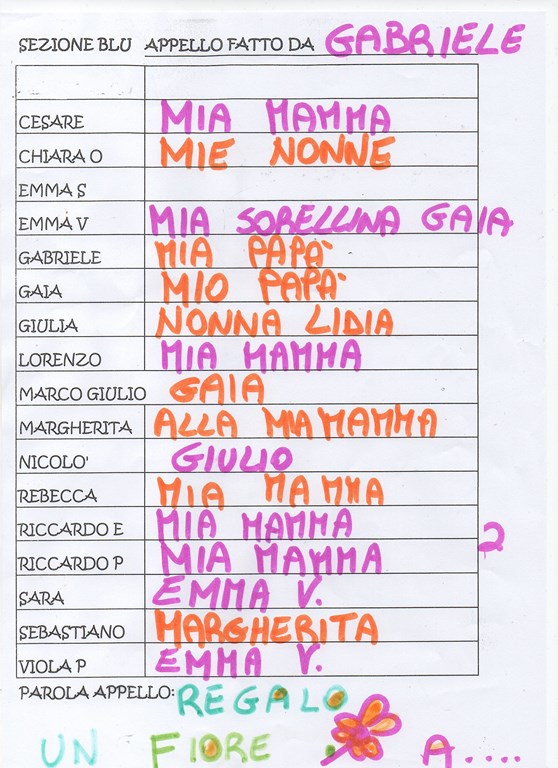 SEZIONE BLU APPELLO FATTO DA GABRIELE
CESARE MIA MAMMA
CHIARA O MIE NONNE
EMMA S
EMMA V MIA SORELLINA GAIA
GABRIELE MIA PAPA'
GAIA MIO PAPA'
GIULIA NONNA LIDIA
LORENZO MIA MAMMA
MARCO GIULIO GAIA
MARGHERITA ALLA MIA MAMMA
NICOLO' GIULIO
REBECCA MIA MAMMA
RICCARDO E MIA MAMMA
RICCARDO P MIA MAMMA 2
SARA EMMA V.
SEBASTIANO MARGHERITA
VIOLA P EMMA V.
PAROLA APPELLO: REGALO
UN FIORE A....